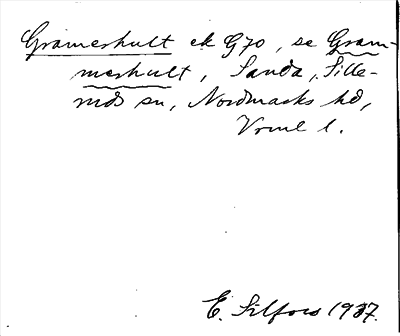 Gramershult ek G70, se Gram-
mershult, Sanda, Sille-
ruds sn, Nordmarks hd,
Vrml l.
E. Silfors 1937.